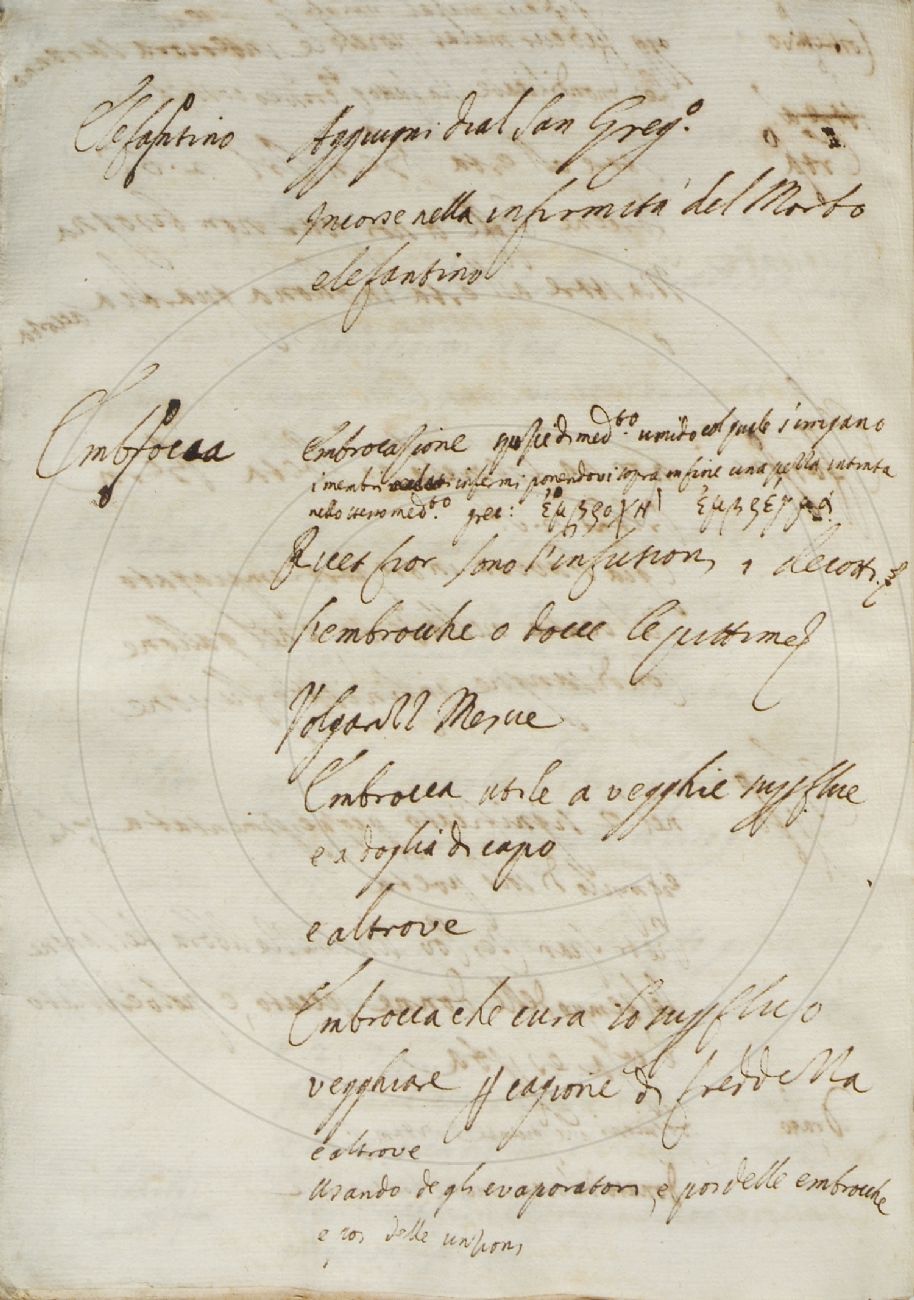 Elefantino Aggiugni Dial San Greg.º
Incorse nella infirmità del Morbo
elefantino
Embrocca Embrocazione spezie di med.to umido col quale s'irrigano
i membri infermi ponendovi sopra infine una pella intinta
nello stesso med.to grec: ἐμβροχὴ ἐμβρεγμα
Ricet fior sono l'infusioni, i decotti
l'embrocche o docce le pittime
Volgarizz Mesue
Embrocca utile a vegghie superflue
e a doglia di capo
e altrove
Embrocca che cura lo superfluo
vegghiare per cagione di freddezza
e altrove
Usando degli evaporatori, e poi delle embrocche
e poi delle unzioni